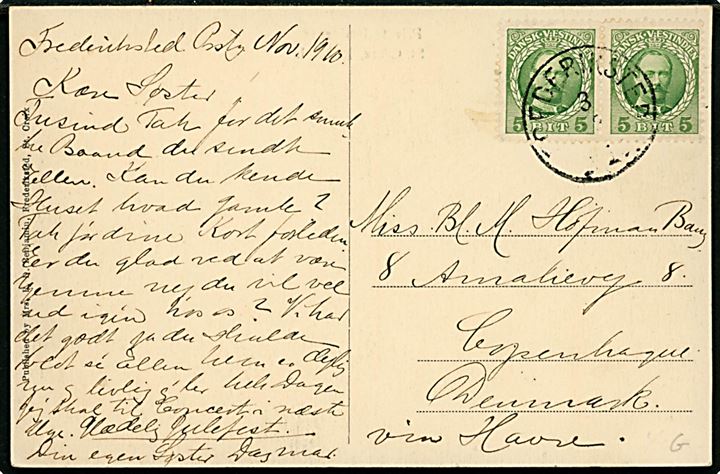 Frederiksted Nov. 1910.
Kære Søster
Tusind Tak for det smuk-
ke Baand du sendte
Ellen. Kan du kende
Huset hvad Gamle?
Tak for dine Kort forleden
er du glad ved at være
hjemme nej du vil vel
ud igen hos os? Vi har
det godt ja du skulde
se Ellen hun er
og livlig hele Dagen
jeg skal til Concert i næste
Uge. Glædelig Julefest.
Din egen Søster Dagmar.
Published by Mrs. Benjamin, Frederiksted, St. Croix
DANSK-VESTINDIEN
5 BIT 5
DANSK-VESTINDIEN
5 BIT 5
FREDERIKSTED
Miss Bl. M. Hofman Bang
8 Amalievej 8.
Copenhague
Denmark.
via Havre.
G